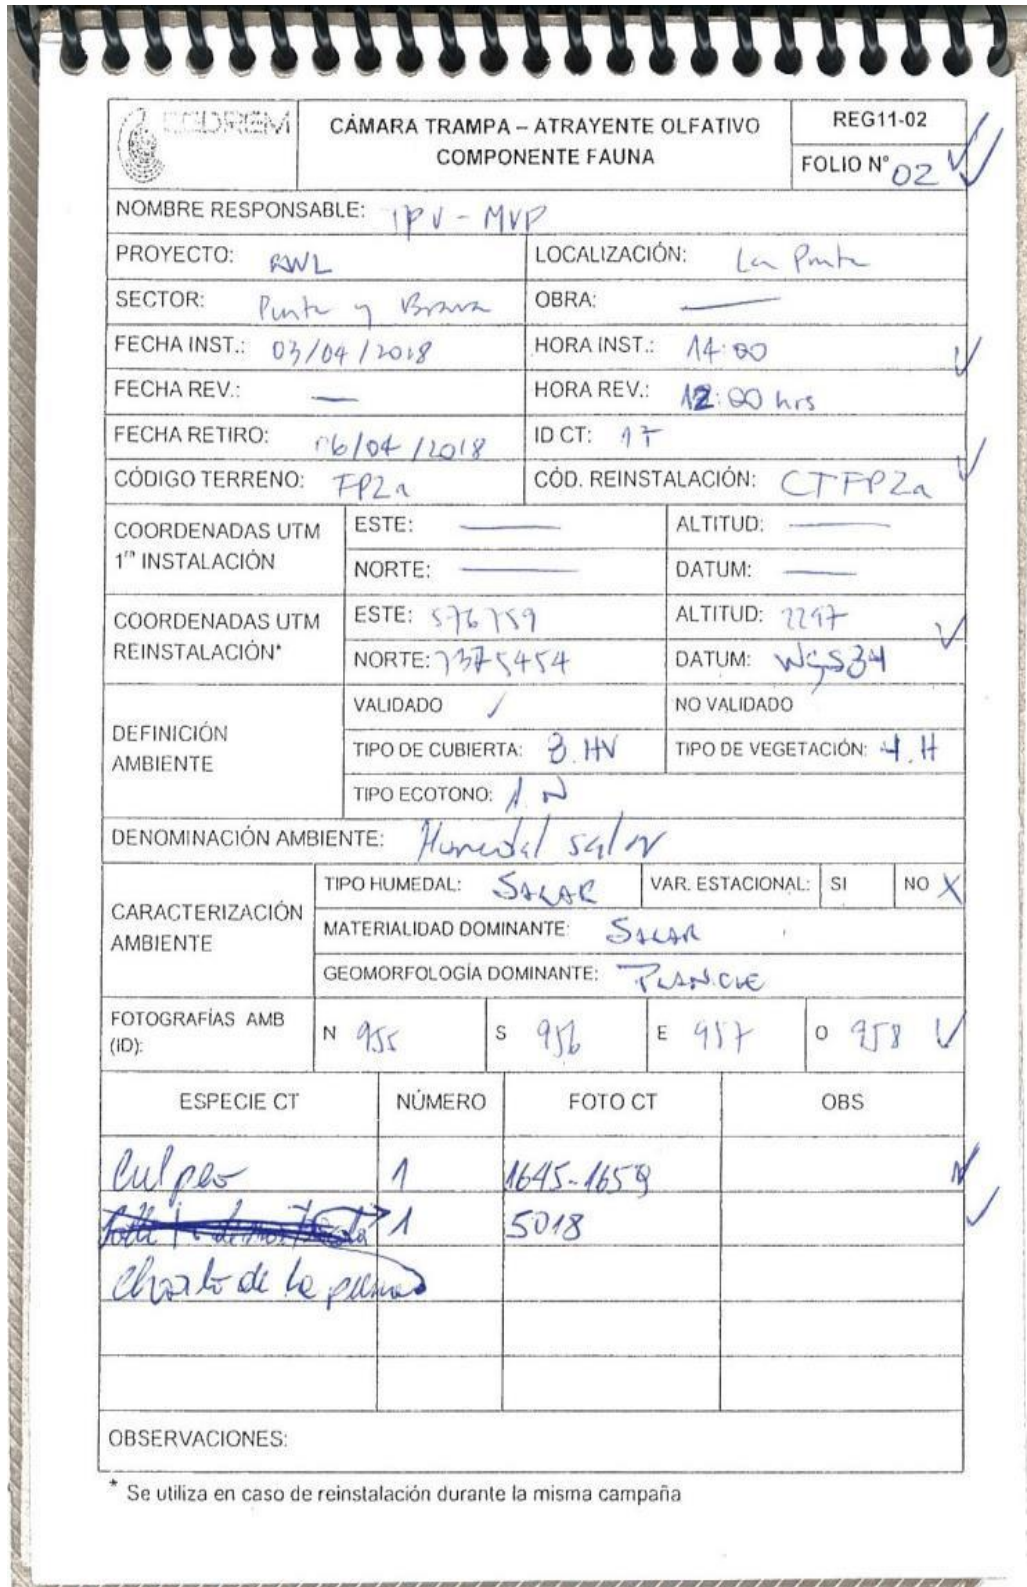 CEDREM
CÁMARA TRAMPA – ATRAYENTE OLFATIVO
COMPONENTE FAUNA
REG11-02
FOLIO N° 02
NOMBRE RESPONSABLE: IPV - MVP
PROYECTO: RWL LOCALIZACIÓN: La Punta
SECTOR: Punta y Brava OBRA: —
FECHA INST.: 03/04/2018 HORA INST.: 14:00
FECHA REV.: — HORA REV.: 12:00 hrs
FECHA RETIRO: 06/04/2018 ID CT: 17
CÓDIGO TERRENO: FP2a CÓD. REINSTALACIÓN: CTFP2a
COORDENADAS UTM 1ra INSTALACIÓN ESTE: — ALTITUD: —
NORTE: — DATUM: —
COORDENADAS UTM REINSTALACIÓN* ESTE: 576759 ALTITUD: 2297
NORTE: 7375454 DATUM: WGS84
DEFINICIÓN AMBIENTE VALIDADO ✓ NO VALIDADO
TIPO DE CUBIERTA: 8. HV TIPO DE VEGETACIÓN: 4. H
TIPO ECOTONO: 1. N
DENOMINACIÓN AMBIENTE: Humedal salar
CARACTERIZACIÓN AMBIENTE TIPO HUMEDAL: SALAR VAR. ESTACIONAL: SI NO X
MATERIALIDAD DOMINANTE: SALAR
GEOMORFOLOGÍA DOMINANTE: PLANCIE
FOTOGRAFÍAS AMB (ID): N 955 S 956 E 957 O 958
ESPECIE CT NÚMERO FOTO CT OBS
Culpeo 1 1645-1659
1 5018
Chorlo de la puna
OBSERVACIONES:
* Se utiliza en caso de reinstalación durante la misma campaña